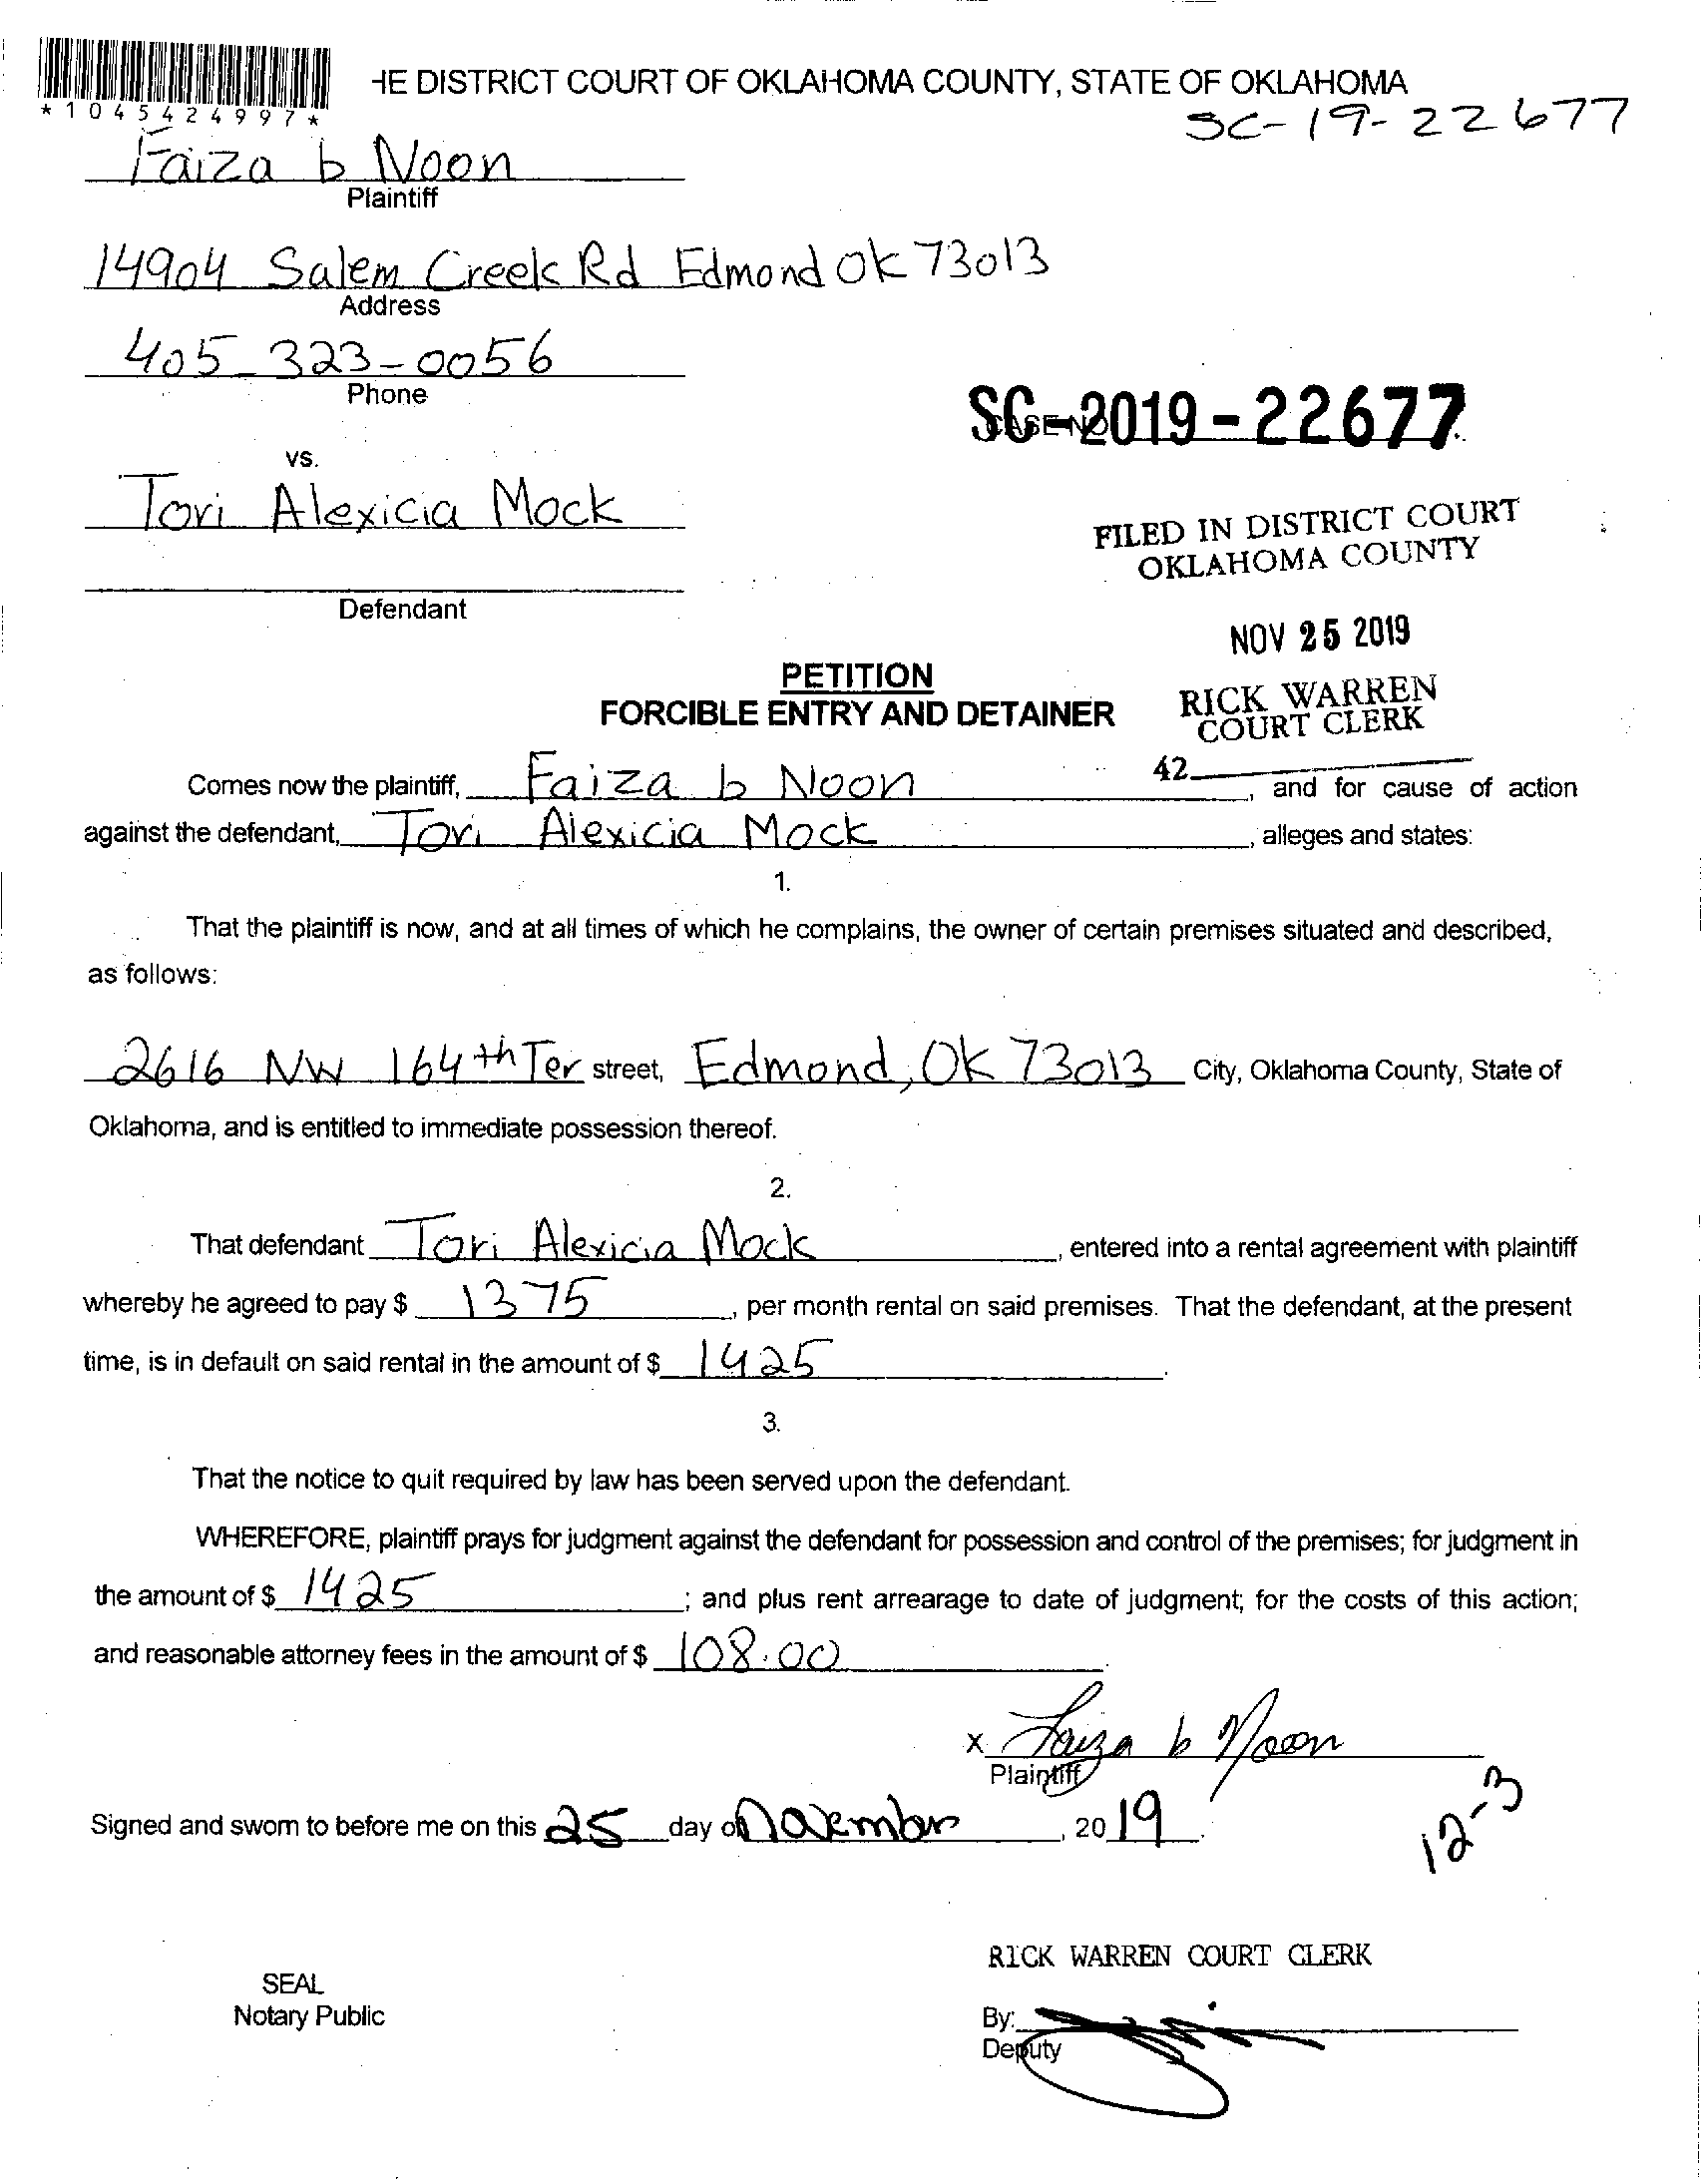 HE DISTRICT COURT OF OKLAHOMA COUNTY, STATE OF OKLAHOMA
*1045424997*
SC-19-22677
Faiza b Noon
Plaintiff
14904 Salem Creek Rd Edmond OK 73013
Address
405-323-0056
Phone
SC-2019-22677
CASE NO.
vs.
Tori Alexicia Mock
FILED IN DISTRICT COURT
OKLAHOMA COUNTY
Defendant
NOV 25 2019
PETITION
FORCIBLE ENTRY AND DETAINER
RICK WARREN
COURT CLERK
42
Comes now the plaintiff, Faiza b Noon, and for cause of action
against the defendant, Tori Alexicia Mock, alleges and states:
1.
That the plaintiff is now, and at all times of which he complains, the owner of certain premises situated and described,
as follows:
2616 NW 164th Ter street, Edmond, OK 73013 City, Oklahoma County, State of
Oklahoma, and is entitled to immediate possession thereof.
2.
That defendant Tori Alexicia Mock, entered into a rental agreement with plaintiff
whereby he agreed to pay $ 1375, per month rental on said premises. That the defendant, at the present
time, is in default on said rental in the amount of $ 1425.
3.
That the notice to quit required by law has been served upon the defendant.
WHEREFORE, plaintiff prays for judgment against the defendant for possession and control of the premises; for judgment in
the amount of $ 1425; and plus rent arrearage to date of judgment; for the costs of this action;
and reasonable attorney fees in the amount of $ 108.00.
x Faiza b Noon
Plaintiff
Signed and sworn to before me on this 25 day of November, 2019.
12-3
RICK WARREN COURT CLERK
SEAL
Notary Public
By:
Deputy